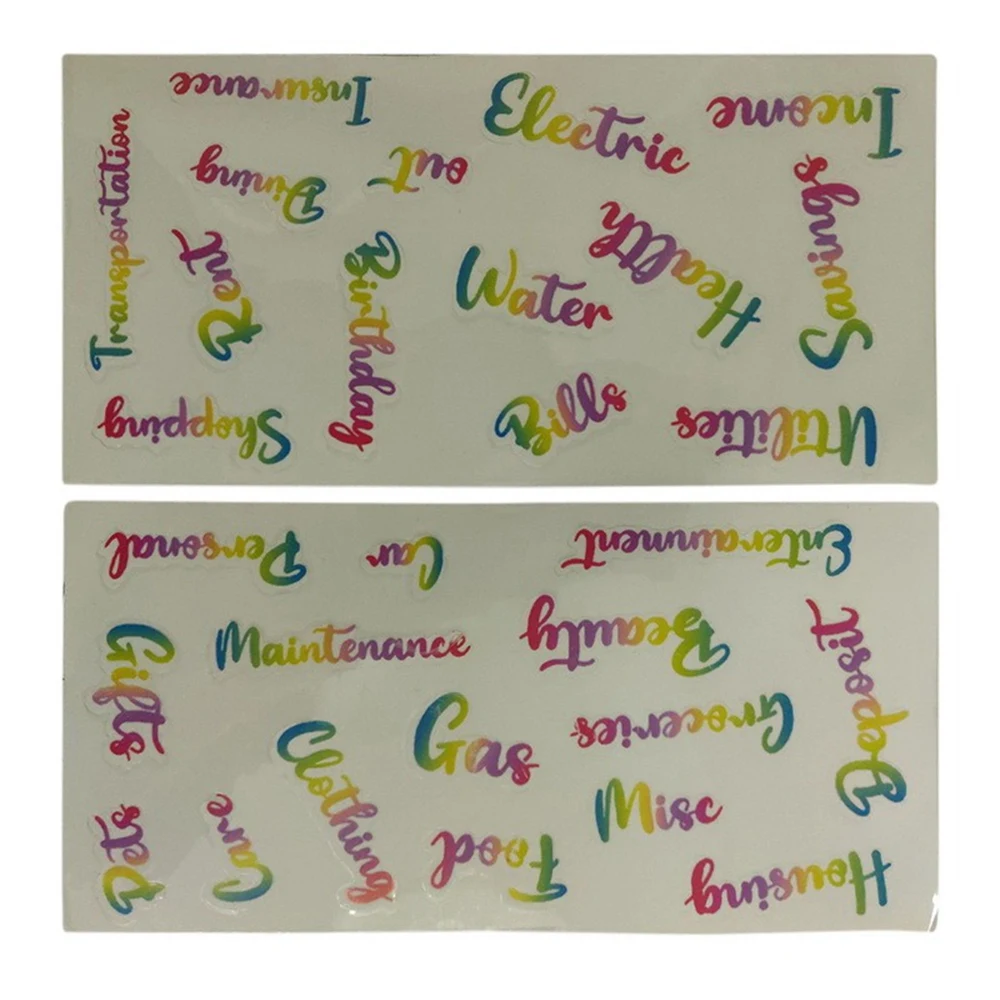 Insurance
Electric
Income
Transportation
Dining
out
Savings
Health
Rent
Birthday
Water
Shopping
Bills
Utilities
Personal
Car
Entertainment
Gifts
Maintenance
Beauty
Deposit
Groceries
Gas
Clothing
Misc
Pets
Care
Food
Housing